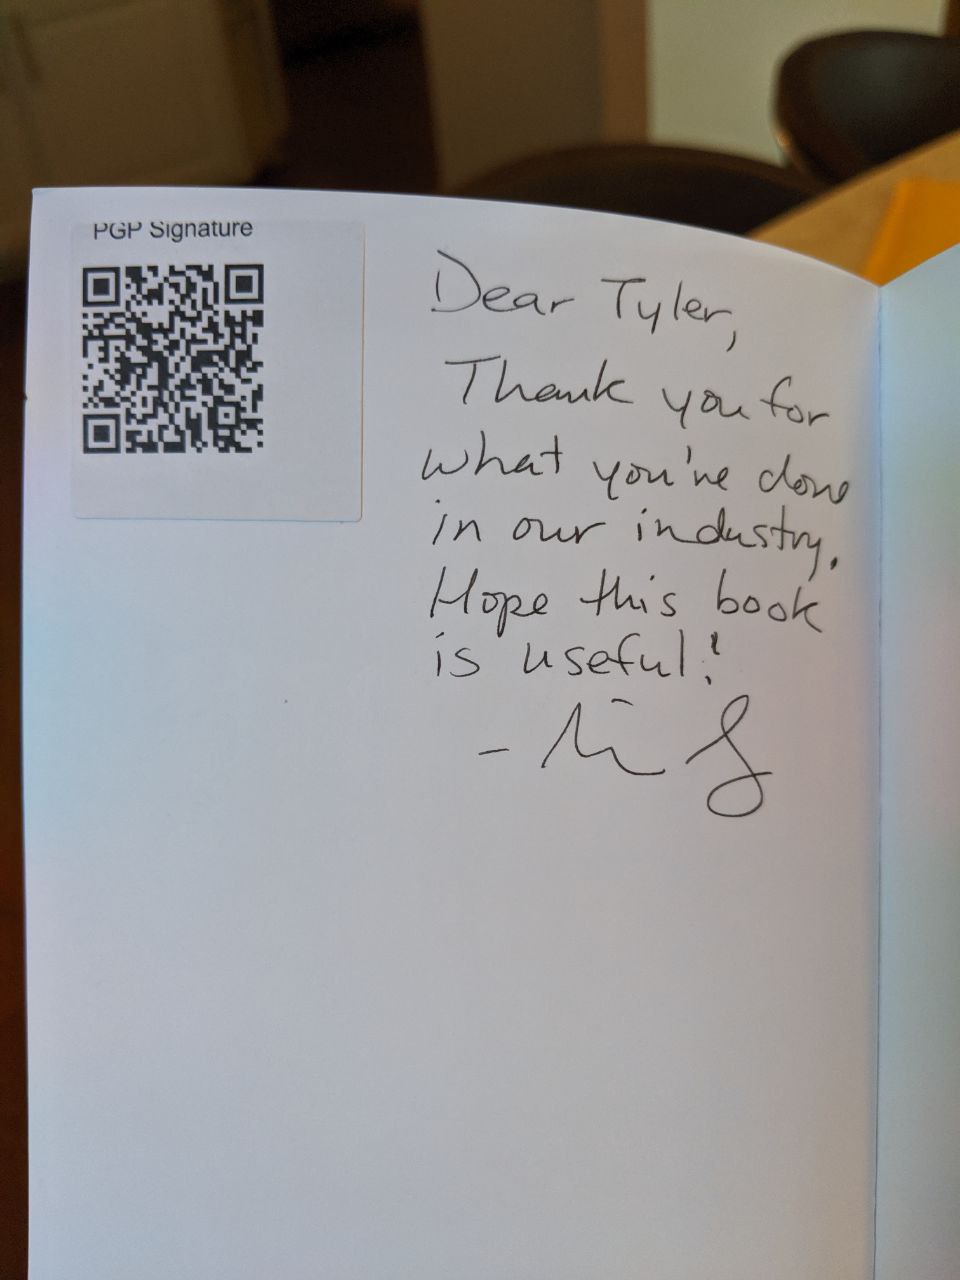 PGP Signature
Dear Tyler,
Thank you for
what you've done
in our industry.
Hope this book
is useful!
-